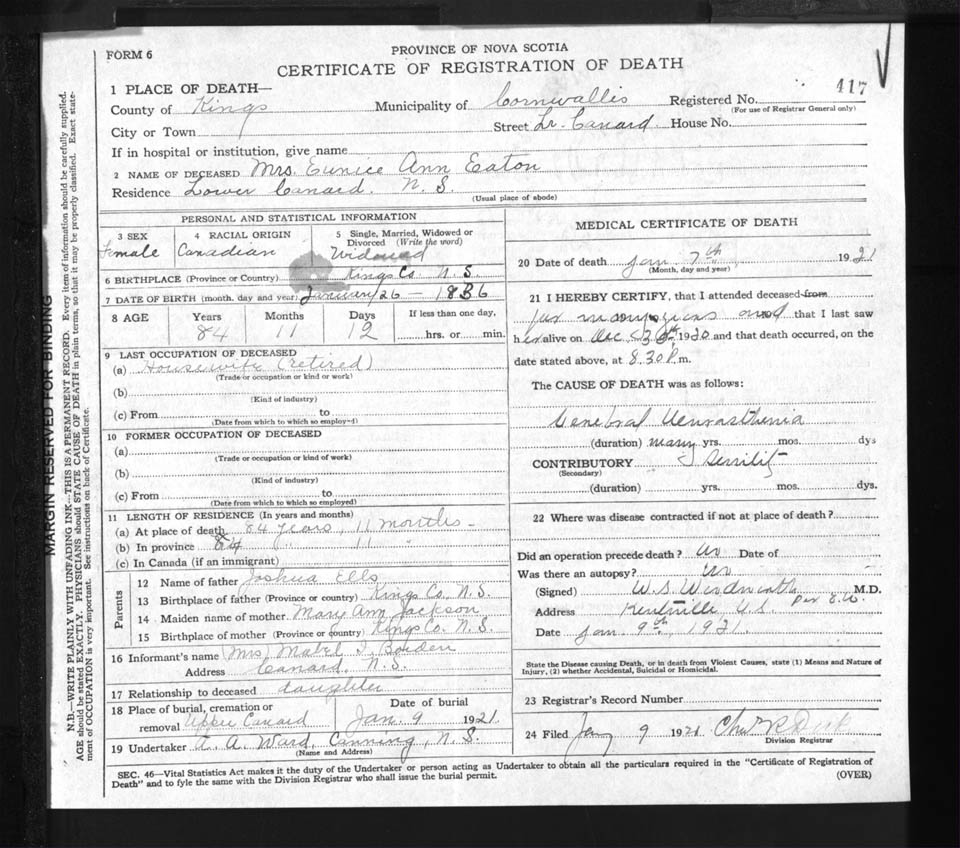 FORM 6
PROVINCE OF NOVA SCOTIA
CERTIFICATE OF REGISTRATION OF DEATH
417
1 PLACE OF DEATH—
County of Kings Municipality of Cornwallis Registered No.
(For use of Registrar General only)
City or Town Street Lr. Canard House No.
If in hospital or institution, give name
2 NAME OF DECEASED Mrs. Eunice Ann Eaton
Residence Lower Canard. N. S.
(Usual place of abode)
PERSONAL AND STATISTICAL INFORMATION
3 SEX 4 RACIAL ORIGIN 5 Single, Married, Widowed or Divorced (Write the word)
Female Canadian Widowed
6 BIRTHPLACE (Province or Country) Kings Co. N. S.
7 DATE OF BIRTH (month. day and year) January 26 - 1836
8 AGE Years Months Days If less than one day,
84 11 12 hrs. or min.
9 LAST OCCUPATION OF DECEASED
(a) Housewife (retired)
(Trade or occupation or kind or work)
(b)
(Kind of industry)
(c) From to
(Date from which to which so employed)
10 FORMER OCCUPATION OF DECEASED
(a)
(Trade or occupation or kind of work)
(b)
(Kind of industry)
(c) From to
(Date from which to which so employed)
11 LENGTH OF RESIDENCE (In years and months)
(a) At place of death 84 years, 11 months -
(b) In province 84 " 11 "
(c) In Canada (if an immigrant)
Parents
12 Name of father Joshua Ells
13 Birthplace of father (Province or country) Kings Co. N. S.
14 Maiden name of mother Mary Ann Jackson
15 Birthplace of mother (Province or country) Kings Co. N. S.
16 Informant's name Mrs. Mabel I. Borden
Address Canard, N. S.
17 Relationship to deceased daughter
18 Place of burial, cremation or removal Upper Canard Date of burial Jan. 9 1921
19 Undertaker A. A. Ward, Canning, N. S.
(Name and Address)
MEDICAL CERTIFICATE OF DEATH
20 Date of death Jan 7th 1921
(Month, day and year)
21 I HEREBY CERTIFY, that I attended deceased from
for many years and that I last saw
her alive on Dec 1920 and that death occurred, on the
date stated above, at 8.30 P. m.
The CAUSE OF DEATH was as follows:
General Neurasthenia
(duration) many yrs. mos. dys
CONTRIBUTORY Senility
(Secondary)
(duration) yrs. mos. dys.
22 Where was disease contracted if not at place of death?
Did an operation precede death? no Date of
Was there an autopsy? no
(Signed) M.D.
Address Kentville N.S.
Date Jan. 9th 1921
State the Disease causing Death, or in death from Violent Causes, state (1) Means and Nature of
Injury, (2) whether Accidental, Suicidal or Homicidal.
23 Registrar's Record Number
24 Filed Jany 9 1921
Division Registrar
SEC. 46—Vital Statistics Act makes it the duty of the Undertaker or person acting as Undertaker to obtain all the particulars required in the "Certificate of Registration of
Death" and to fyle the same with the Division Registrar who shall issue the burial permit. (OVER)
MARGIN RESERVED FOR BINDING
N.B.—WRITE PLAINLY WITH UNFADING INK—THIS IS A PERMANENT RECORD. Every item of information should be carefully supplied.
AGE should be stated EXACTLY. PHYSICIANS should STATE CAUSE OF DEATH in plain terms, so that it may be properly classified. Exact state-
ment of OCCUPATION is very important. See instructions on back of Certificate.